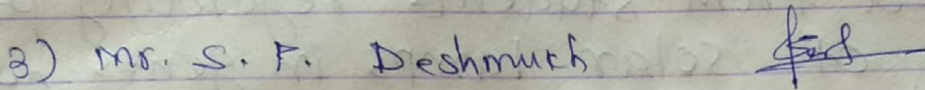 3) Mr. S. F. Deshmukh